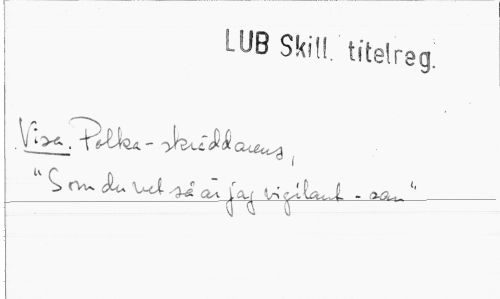 LUB Skill. titelreg.
Visa. Polka-skräddarens,
"Som du vet så är jag vigilant - san"